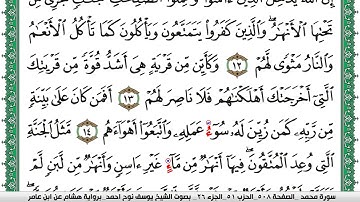 إِنَّ ٱللَّهَ يُدۡخِلُ ٱلَّذِينَ ءَامَنُواْ وَعَمِلُواْ ٱلصَّٰلِحَٰتِ جَنَّٰتٖ تَجۡرِي مِن
تَحۡتِهَا ٱلۡأَنۡهَٰرُۖ وَٱلَّذِينَ كَفَرُواْ يَتَمَتَّعُونَ وَيَأۡكُلُونَ كَمَا تَأۡكُلُ ٱلۡأَنۡعَٰمُ
وَٱلنَّارُ مَثۡوٗى لَّهُمۡ ١٢ وَكَأَيِّن مِّن قَرۡيَةٍ هِيَ أَشَدُّ قُوَّةٗ مِّن قَرۡيَتِكَ
ٱلَّتِيٓ أَخۡرَجَتۡكَ أَهۡلَكۡنَٰهُمۡ فَلَا نَاصِرَ لَهُمۡ ١٣ أَفَمَن كَانَ عَلَىٰ بَيِّنَةٖ
مِّن رَّبِّهِۦ كَمَن زُيِّنَ لَهُۥ سُوٓءُ عَمَلِهِۦ وَٱتَّبَعُوٓاْ أَهۡوَآءَهُم ١٤ مَّثَلُ ٱلۡجَنَّةِ
ٱلَّتِي وُعِدَ ٱلۡمُتَّقُونَۖ فِيهَآ أَنۡهَٰرٞ مِّن مَّآءٍ غَيۡرِ ءَاسِنٖ وَأَنۡهَٰرٞ مِّن لَّبَنٖ لَّمۡ
سورة محمد_ الصفحة ٥٠٨_ الحزب ٥١_ الجزء ٢٦_ بصوت الشيخ يوسف نوح احمد_ برواية هشام عن ابن عامر